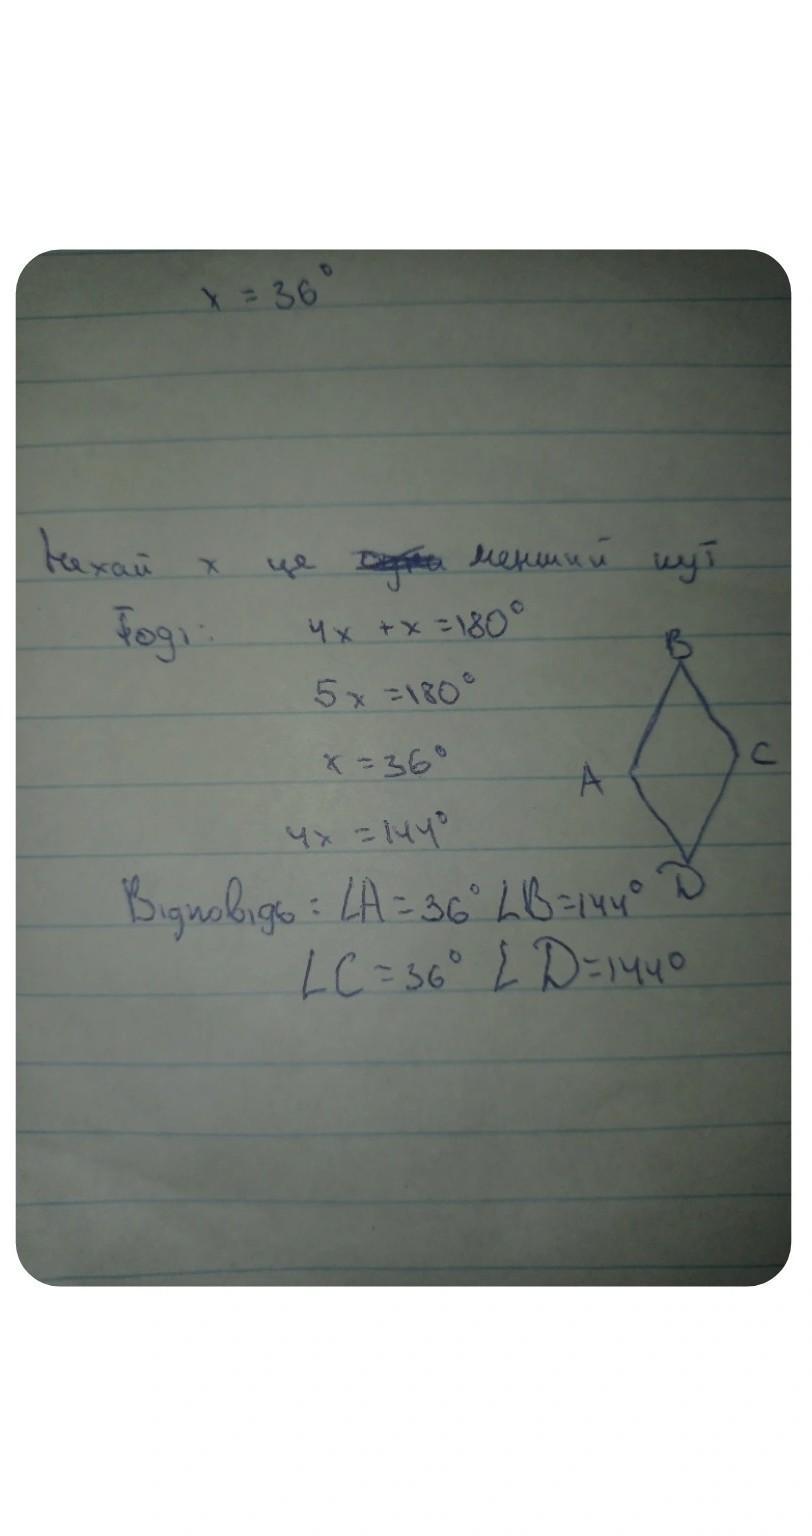 x = 36°
Нехай x це менший кут
Тоді: 4x + x = 180°
5x = 180°
x = 36°
4x = 144°
B
A
C
D
Відповідь: ∠A = 36° ∠B = 144°
∠C = 36° ∠D = 144°